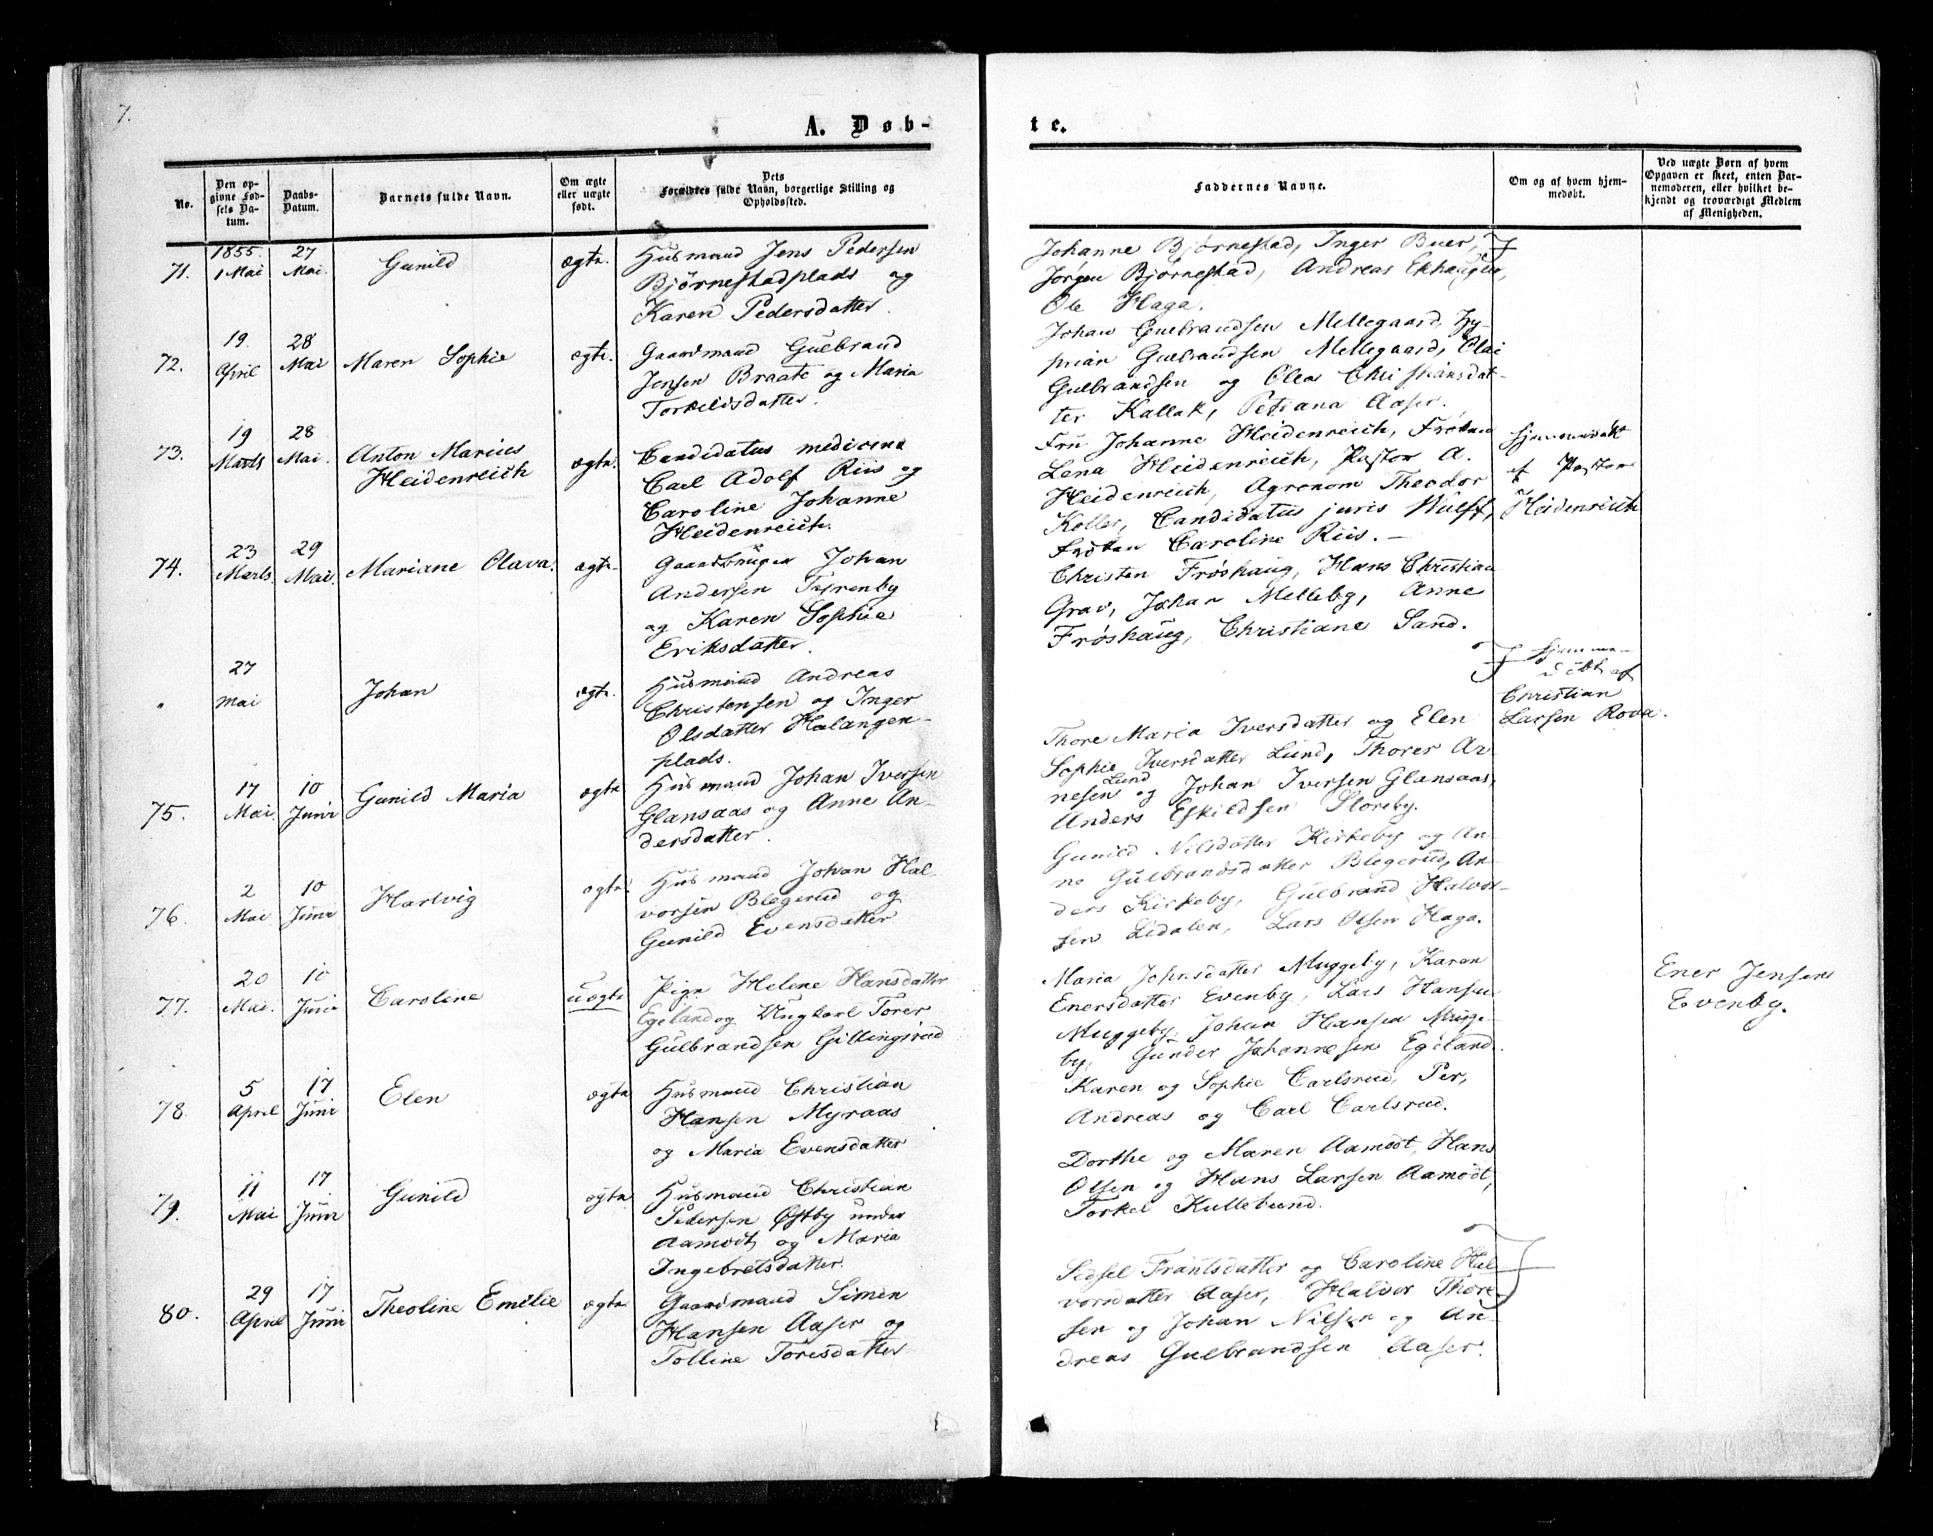 7.
A. Døb-
te.
No.
Den op-
givne Fød-
sels Da-
tum.
Daabs-
Datum.
Barnets fulde Navn.
Om ægte
eller uægte
født.
Dets
Forældres fulde Navn, borgerlige Stilling og
Opholdssted.
Faddernes Navne.
Om og af hvem hjem-
medøbt.
Ved uægte Børn af hvem
Opgaven er skeet, enten Bar-
nemoderen, eller hvilket be-
kjendt og troværdigt Medlem
af Menigheden.
71.
1855.
1 Mai
27
Mai.
Gunild
ægte.
Husmand Jens Pedersen
Bjørnestadplads og
Karen Pedersdatter.
Johanne Bjørnestad, Inger Buer,
Jørgen Bjørnestad, Andreas Ekhaugen,
Ole Haga.
72.
19.
April
28
Mai
Maren Sophie
ægte.
Gaardmand Gulbrand
Jensen Braate og Maria
Torkeldsdatter.
Johan Gulbrandsen Mellegaard, Zy-
prian Gulbrandsen Mellegaard, Olai
Gulbrandsen og Olea Christiansdat-
ter Kallak, Petrana Aaser.
73.
19
Marts
28
Mai.
Anton Marius
Heidenreich
ægte.
Candidatus medicinæ
Carl Adolf Riis og
Caroline Johanne
Heidenreich.
Fru Johanne Heidenreich, Frøken
Lena Heidenreich, Pastor A.
Heidenreich, Agronom Theodor
Koller, Candidatus juris Wulff,
Frøken Caroline Riis. –
Hjemmedøbt
af Pastor
Heidenreich
74.
23
Marts.
29
Mai.
Mariane Olava.
ægte.
Gaardbruger Johan
Andersen
og Karen Sophie
Eriksdatter.
Christen Frøshaug, Hans Christian
Grav, Johan Melleby, Anne
Frøshaug, Christiane Sand.
"
27
Mai
Johan
ægte.
Husmand Andreas
Christensen og Inger
Olsdatter Halangen-
plads.
Hjemme-
døbt af
Christian
Larsen Rova.
75.
17
Mai
10
Juni
Gunild Maria
ægte
Husmand Johan Iversen
Glansaas og Anne An-
dersdatter.
Thore Maria Iversdatter og Elen
Sophie Iversdatter Lund, Thorer Ar-
nesen Lund og Johan Iversen Glansaas,
Anders Eskildsen Storeby.
76.
2
Mai
10
Juni
Hartvig
ægte
Husmand Johan Hal-
vorsen Blegerud og
Gunild Evensdatter
Gunild Nilsdatter Kirkeby og An-
ne Gulbrandsdatter Blegerud, An-
ders Kirkeby, Gulbrand Halvor-
sen Lidalen, Lars Olsen Haga.
77.
20
Mai.
10
Juni
Caroline
uægte
Pige Helene Hansdatter
Egeland og Ungkarl Torer
Gulbrandsen Gillingsrud
Maria Johnsdatter Muggeby, Karen
Enersdatter Evenby, Lars Hansen
Muggeby, Johan Hansen Mugge-
by, Gunder Johannesen Egeland.
Ener Jensen
Evenby.
78.
5
April
17
Juni
Elen
ægte
Husmand Christian
Hansen Myraas
og Maria Evensdatter
Karen og Sophie Carlsrud, Per,
Andreas og Carl Carlsrud.
79.
11
Mai
17
Juni
Gunild
ægte
Husmand Christian
Pedersen Østby under
Aamodt og Maria
Ingebretsdatter.
Dorthe og Maren Aamodt, Hans
Olsen og Hans Larsen Aamodt,
Torkel Kullebund.
80.
29
April
17
Juni
Theoline Emilie
ægte
Gaardmand Simen
Hansen Aaser og
Tolline Toresdatter
Sidsel Frantsdatter og Caroline Hal-
vorsdatter Aaser, Halvor Thore-
sen og Johan Nilsen og An-
dreas Gulbrandsen Aaser.